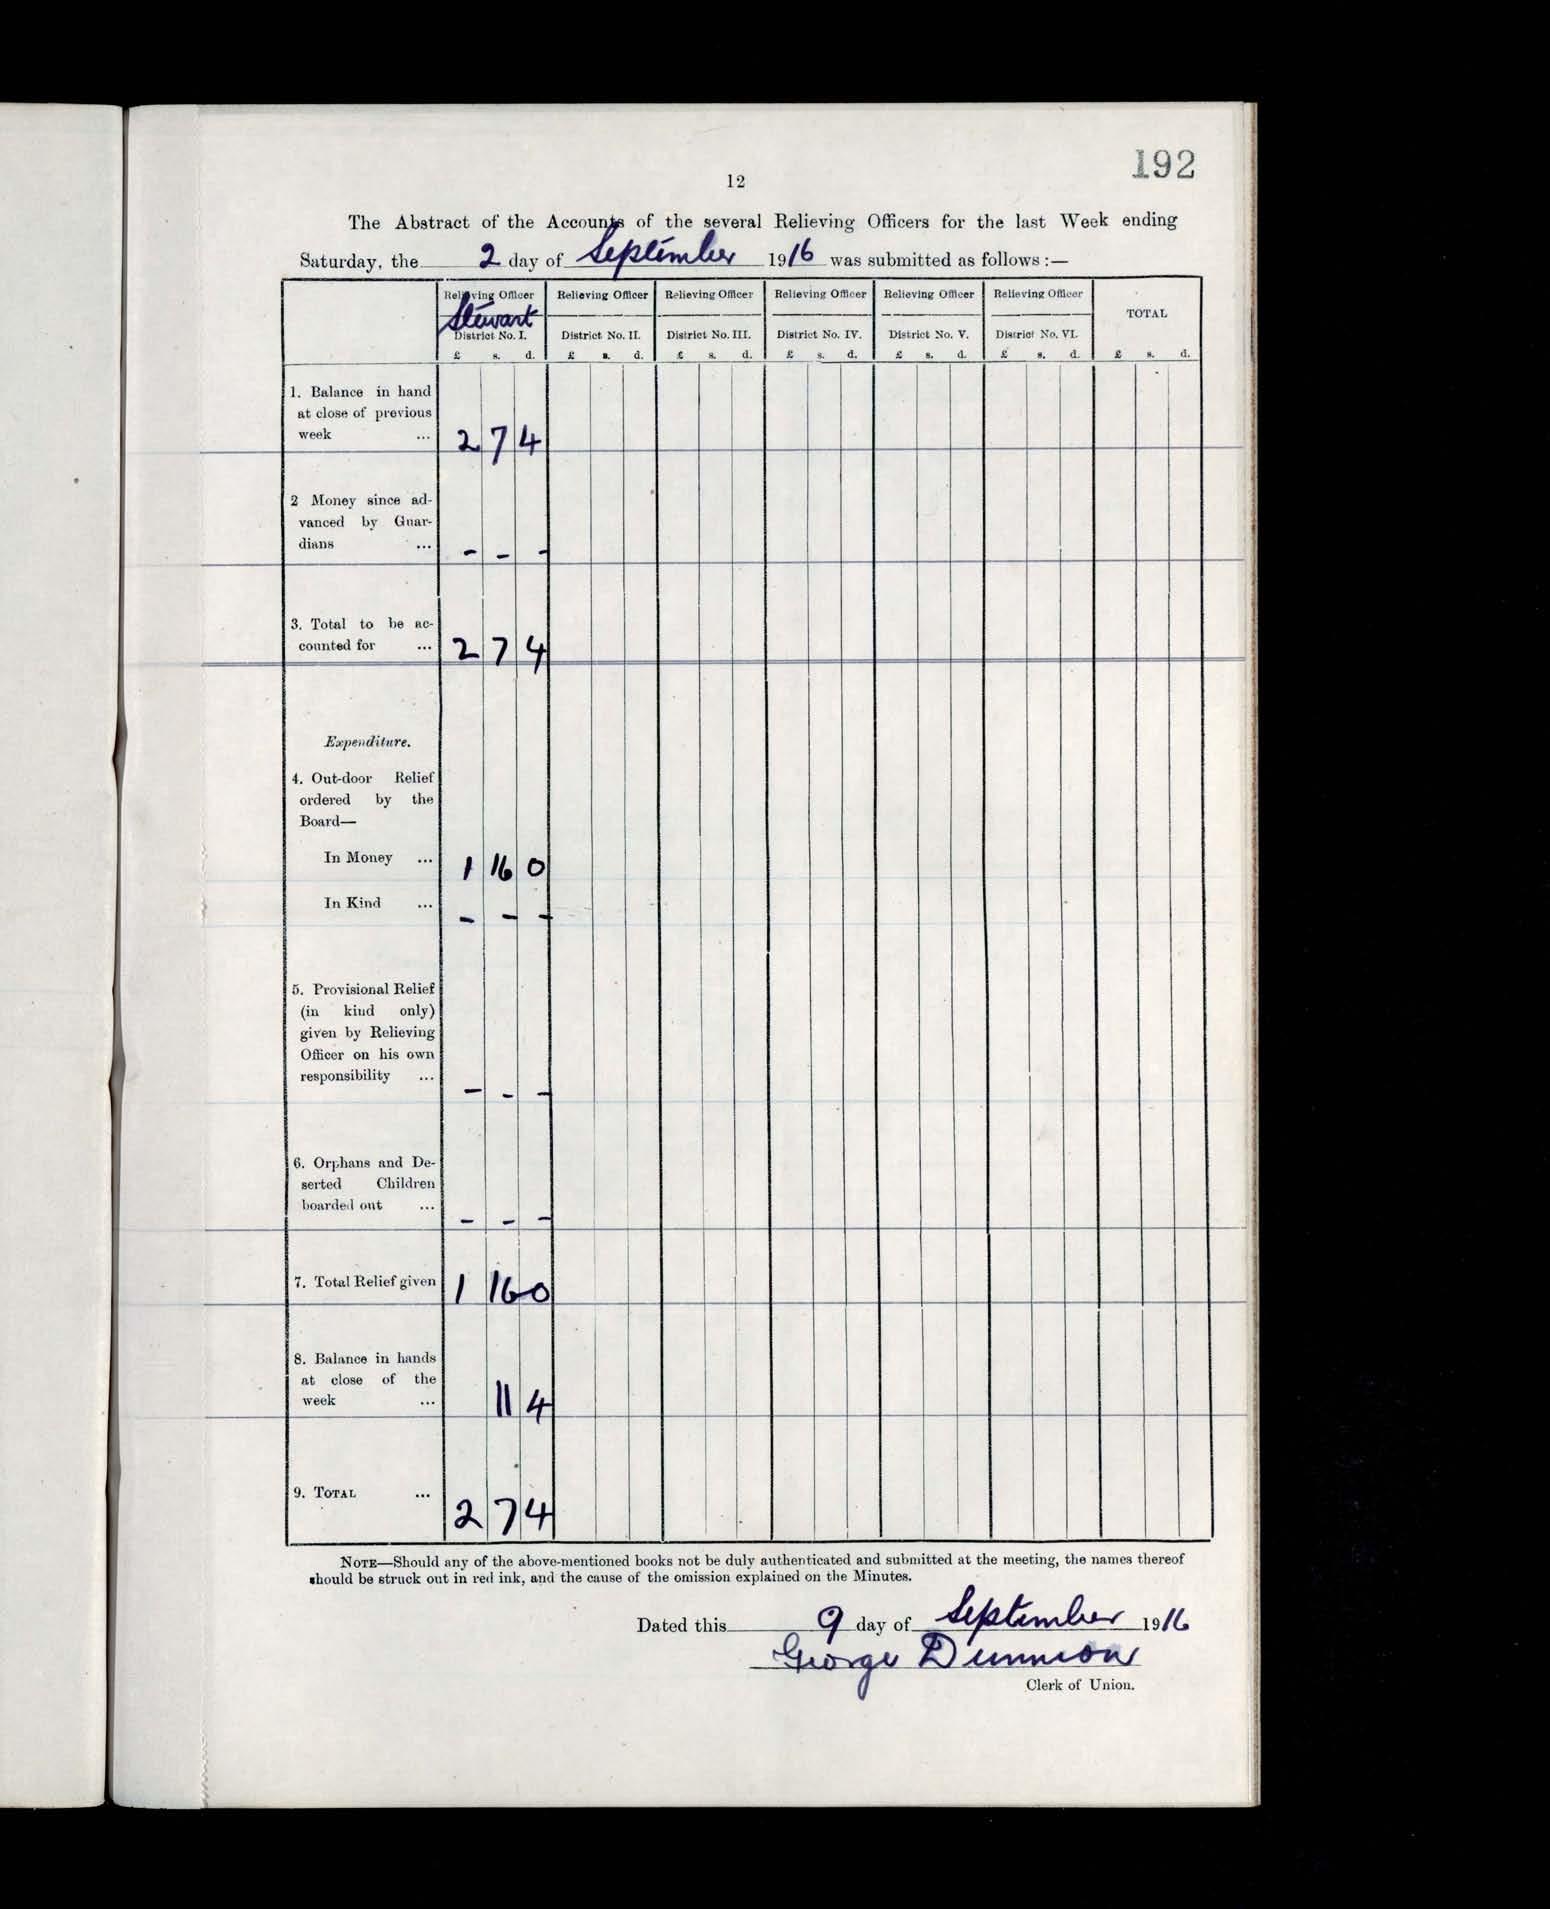 192
12
The Abstract of the Accounts of the several Relieving Officers for the last Week ending
Saturday, the 2 day of September 1916 was submitted as follows :—
Relieving Officer Relieving Officer Relieving Officer Relieving Officer Relieving Officer Relieving Officer
Stewart TOTAL
District No. I. District No. II. District No. III. District No. IV. District No. V. District No. VI.
£ s. d. £ s. d. £ s. d. £ s. d. £ s. d. £ s. d. £ s. d.
1. Balance in hand
at close of previous
week ... 2 7 4
2 Money since ad-
vanced by Guar-
dians ... - - -
3. Total to be ac-
counted for ... 2 7 4
Expenditure.
4. Out-door Relief
ordered by the
Board—
In Money ... 1 16 0
In Kind ... - - -
5. Provisional Relief
(in kind only)
given by Relieving
Officer on his own
responsibility ... - - -
6. Orphans and De-
serted Children
boarded out ... - - -
7. Total Relief given 1 16 0
8. Balance in hands
at close of the
week ... 11 4
9. TOTAL ... 2 7 4
NOTE—Should any of the above-mentioned books not be duly authenticated and submitted at the meeting, the names thereof
should be struck out in red ink, and the cause of the omission explained on the Minutes.
Dated this 9 day of September 1916
George Dunnion
Clerk of Union.